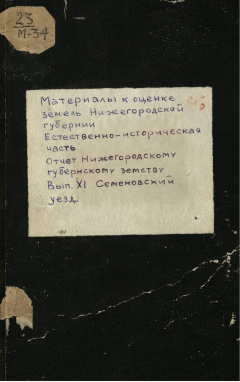 23
М-34
Материалы к оценке
земель Нижегородской
губернии
Естественно-историческая
часть
Отчет Нижегородскому
губернскому земству
Вып. XI Семеновский
уезд.